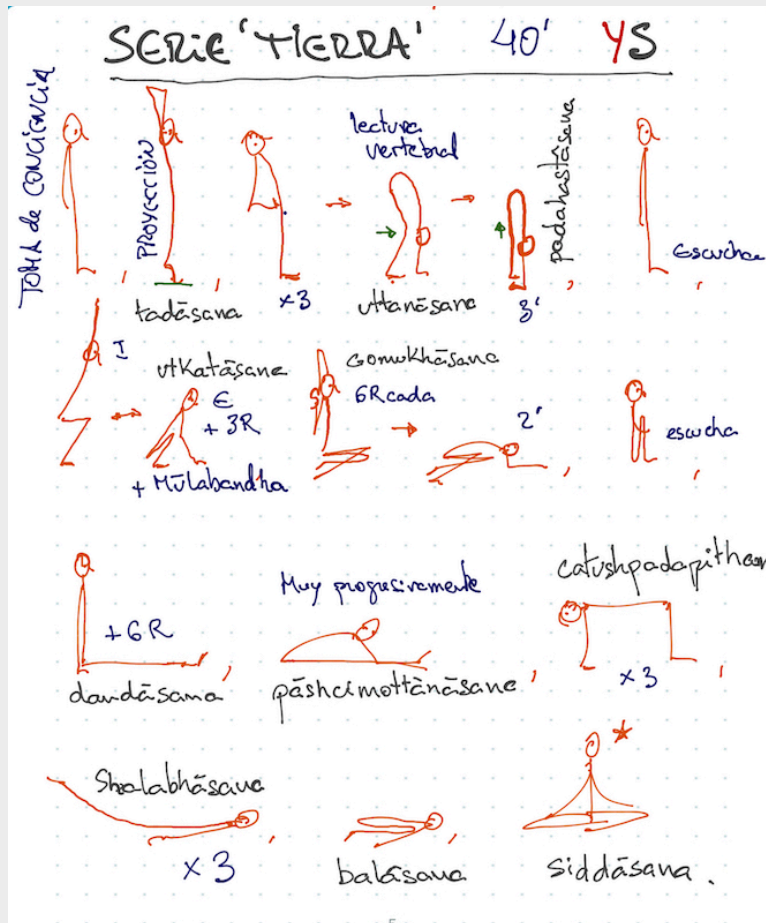 SERIE 'TIERRA' 40' YS
TOMA de CONCIENCIA
PROYECCIÓN
lectura
vertebral
padahastāsana
Escucha
tadāsana
x3
uttanāsana
3'
I
utkatāsana
E
+ 3R
+ Mūlabandha
Gomukhāsana
6R cada
2'
escucha
+6R
dandāsana
Muy progresivamente
pāshcimottānāsana
catushpadapitham
x3
Shalabhāsana
x3
balāsana
siddāsana.